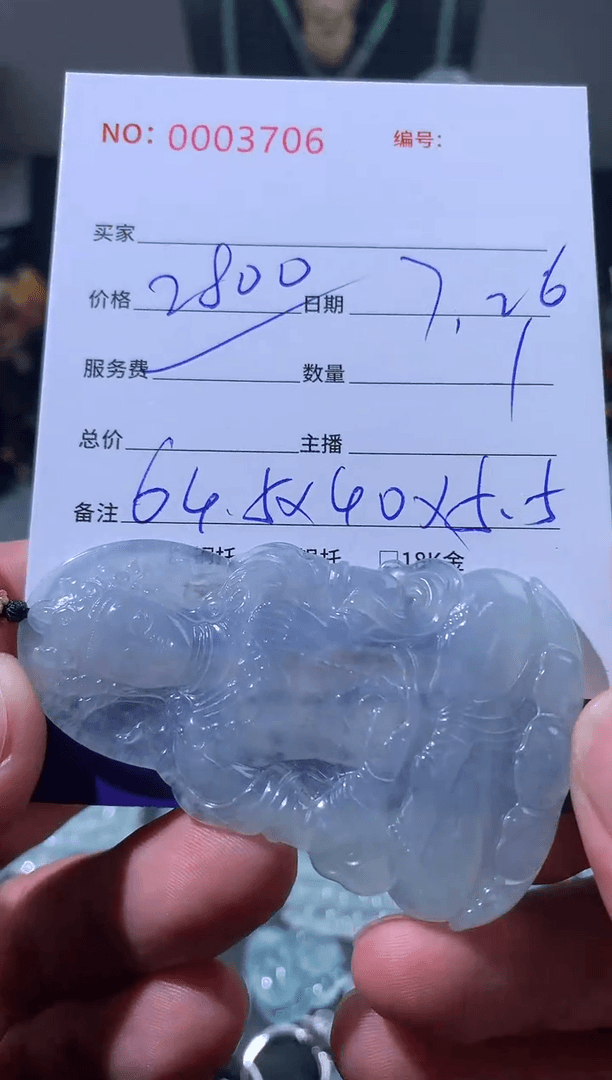 NO: 0003706 编号:
买家
价格 2800 日期 7.26
服务费 数量 1
总价 主播
备注 64.5x40x5.5
托 托 □18K金